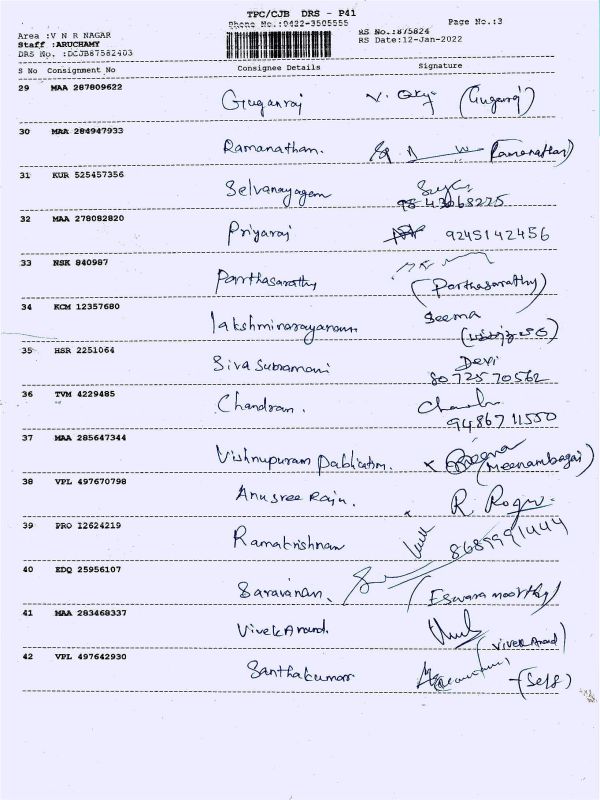 TPC/CJB DRS - P41
Phone No.:0422-3505555
Page No.:3
Area :V N R NAGAR
RS No.:875824
Staff :ARUCHAMY
RS Date:12-Jan-2022
DRS No. :DCJB87582403
S No Consignment No Consignee Details Signature
29 MAA 287809622 Guganraj (Guganraj)
30 MAA 284947933 Ramanathan. (Ramanathan)
31 KUR 525457356 Selvanayagam
9843068225
32 MAA 278082820 Priyaraj 9245142456
33 NSK 840987 Parthasarathy (Parthasarathy)
34 KCM 12357680 lakshminarayanan Seema
35 HSR 2251064 Siva Subramani Devi
80 725 70562
36 TVM 4229485 Chandran.
9486711550
37 MAA 285647344 Vishnupuram Publication. Meena (Meenambegai)
38 VPL 497670798 Anusree Raju.
39 PRO 12624219 Ramakrishnan 8689991444
40 EDQ 25956107 Saravanan. (Eswara moorthy)
41 MAA 283468337 Vivek Anand. (Vivek Anand)
42 VPL 497642930 Santhakumar (Self)